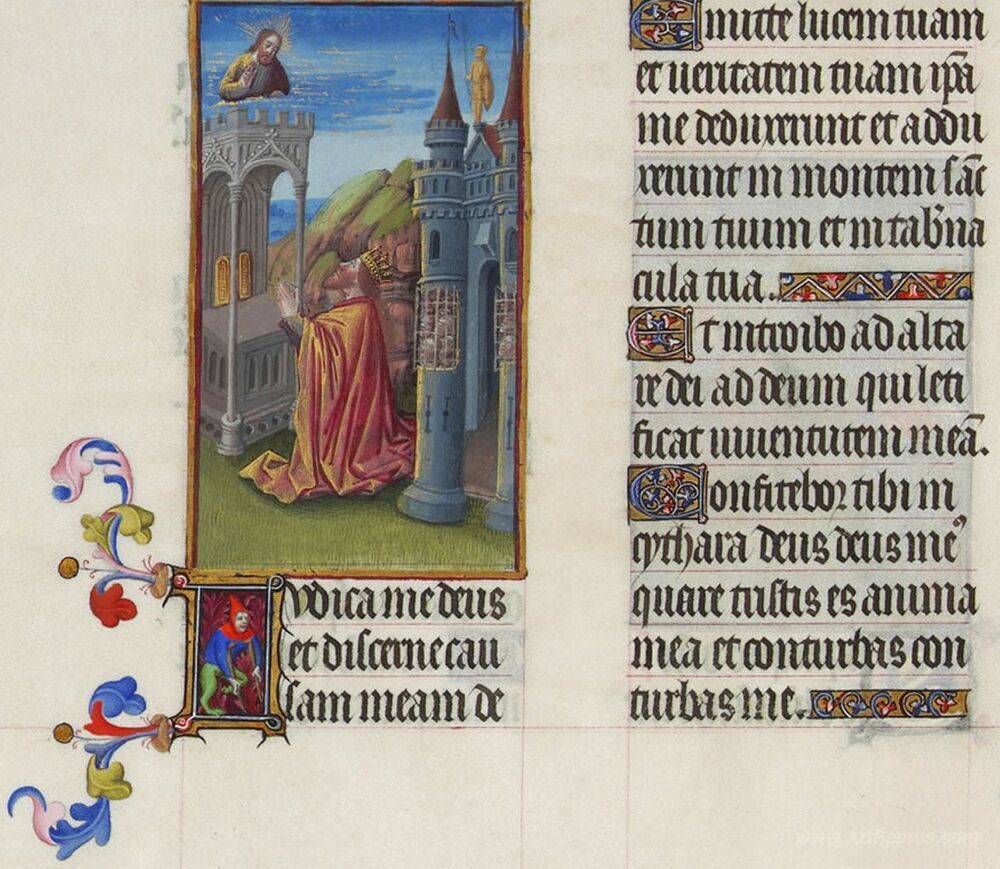 Iudica me deus
et discerne cau
sam meam de
Emitte lucem tuam
et ueritatem tuam ip̄a
me deduxerunt et addu
xerunt in montem sāc
tum tuum et in tab'na
cula tua.
Et introibo ad alta
re dei ad deum qui leti
ficat iuuentutem meā.
Confitebor tibi in
cythara deus deus me᾽
quare tristis es anima
mea et conturbas con
turbas me.
www.ArtRepros.com